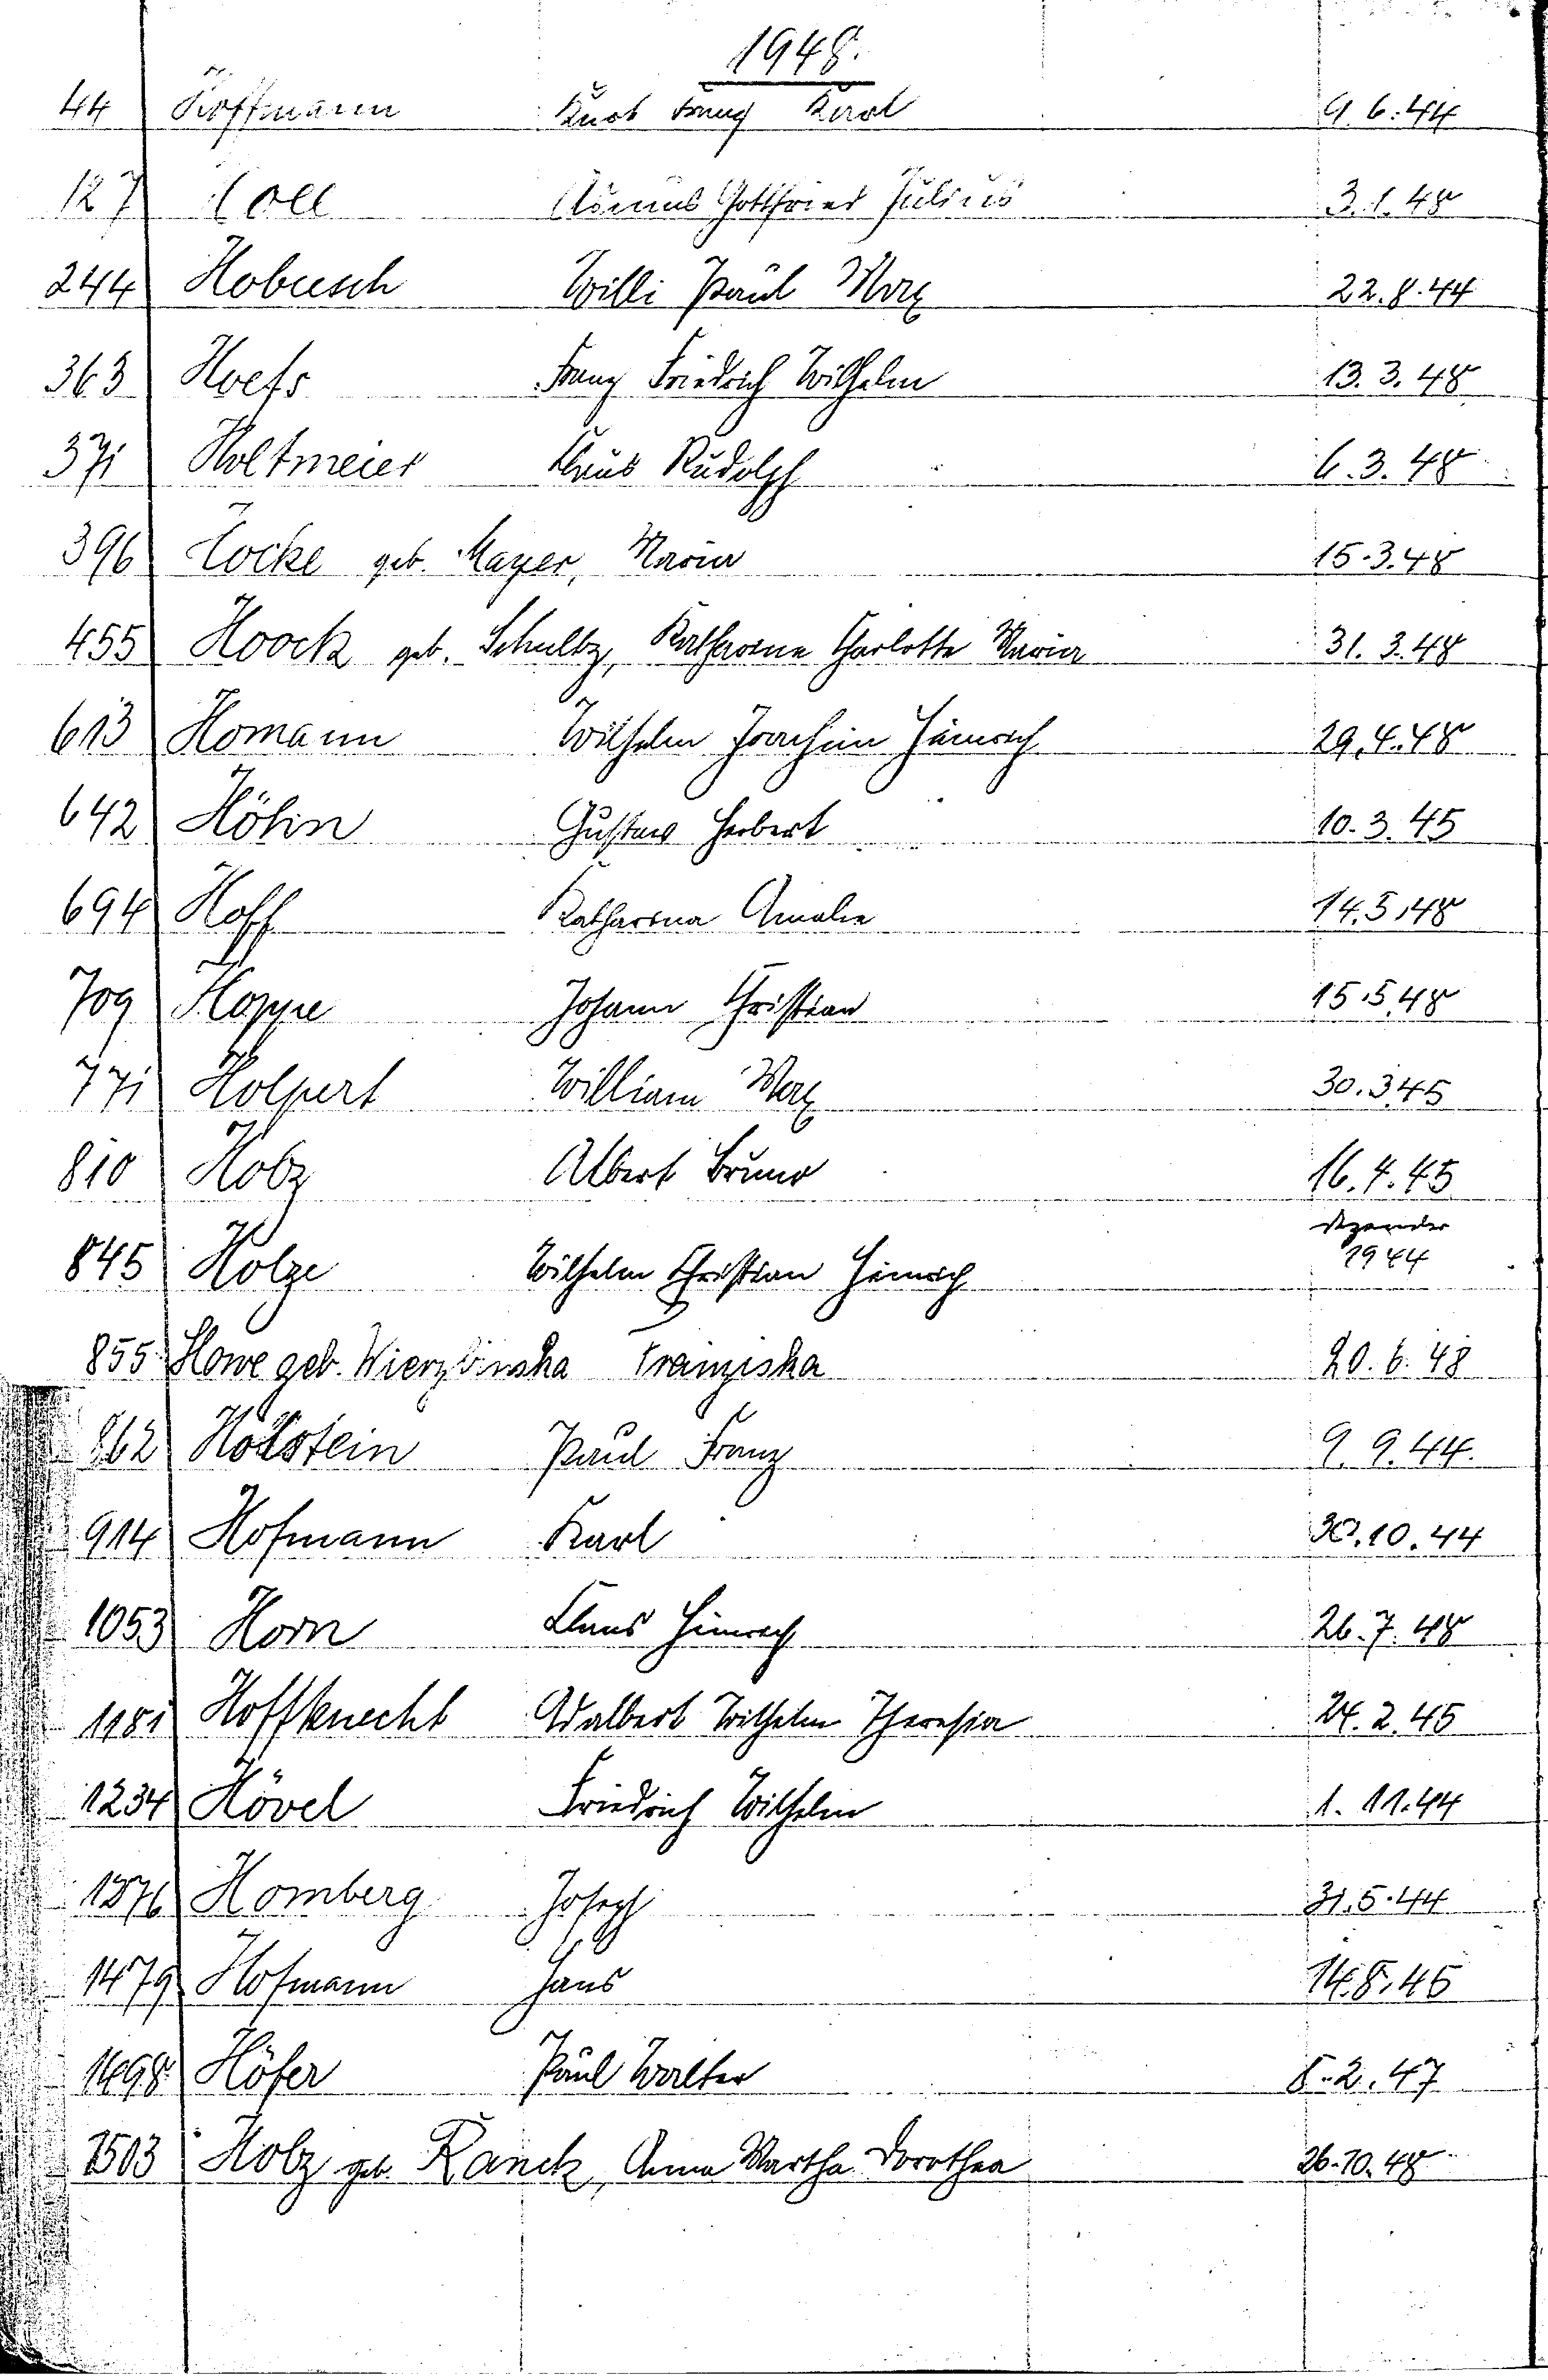 1948.
44 Hoffmann Kurt Franz Karl 9.6.44
127 Holl Asmus Gottfried Julius 3.1.48
244 Hobusch Willi Paul Max 22.8.44
363 Hoefs Franz Friedrich Wilhelm 13.3.48
371 Holtmeier Klaus Rudolph 6.3.48
396 Hocke geb. Mayer, Maria 15.3.48
455 Hoock geb. Schultz, Katharina Charlotte Maria 31.3.48
613 Homann Wilhelm Joachim Hinrich 29.4.48
642 Höhn Gustav Herbert 10.3.45
694 Hoff Katharina Amalie 14.5.48
709 Hoppe Johann Christian 15.5.48
771 Holpert William Max 30.3.45
810 Holz Albert Bruno 16.4.45
845 Holze Wilhelm Christian Heinrich Dezember 1944
855 Howe geb. Wierzbinska Franziska 20.6.48
862 Holstein Paul Franz 9.9.44.
914 Hofmann Karl 30.10.44
1053 Horn Claus Hinrich 26.7.48
1181 Hoffknecht Adalbert Wilhelm Theresia 24.2.45
1234 Hövel Friedrich Wilhelm 1.11.44
1376 Homberg Joseph 31.5.44
1479 Hofmann Hans 14.8.45
1498 Höfer Paul Walter 8.2.47
1503 Holz geb. Ranck, Anna Martha Dorothea 26.10.48